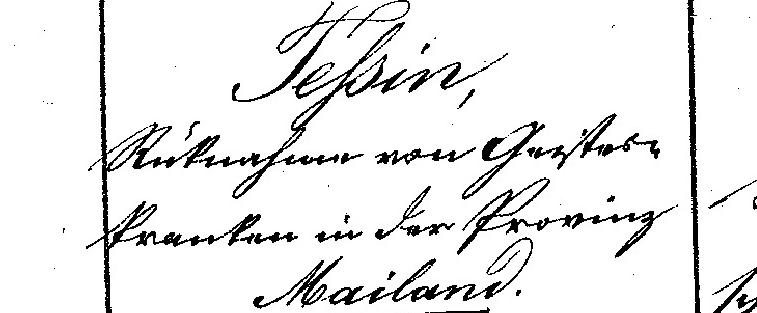 Tessin,
Rüknahme von Geistes-
kranken in der Provinz
Mailand.